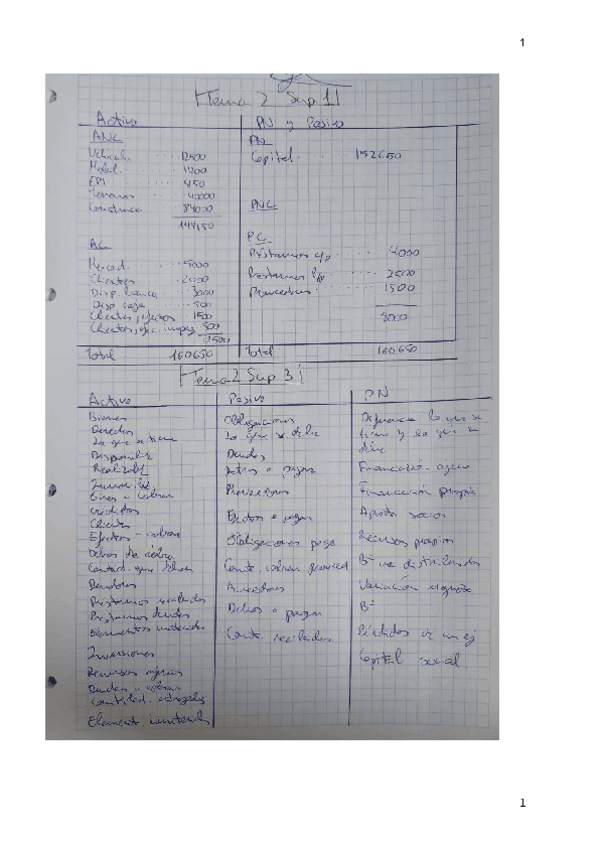 1
Tema 2 Sup 1
Activo
PN y Pasivo
ANC
PN
Vehícul. 12500
Capital 152650
Mobil. 1200
EPI 450
Terrenos
Construcc. 84000
PNC
AC
PC
Préstamos c/p 4000
Mercad. 5000
Préstamos l/p 2500
Clientes 2000
Proveedores 1500
Disp. banco 3000
Disp caja 500
8000
Clientes, efectos 1500
Clientes, efec. impag 500
Total 160650
Total 160650
Tema 2 Sup 3
Activo
Bienes
Derechos
Lo que se tiene
Disponible
Realizable
Giros a cobrar
Créditos
Clientes
Efectos a cobrar
Dchos de cobro
Deudores
Préstamos
Elementos materiales
Inversiones
Recursos
Deudas a cobrar
Cantidad. entregadas
Element. inmateriales
Pasivo
Obligaciones
Lo que se debe
Deudas
a pagar
Proveedores
Efectos a pagar
Obligaciones pago
Cant. cobran proveed
Acreedores
a pagar
Cant. recibidas
PN
Diferencia lo que se
tiene y lo que se
debe
Financiación ajena
Financiación propia
Aportac socios
Recursos propios
Bº no distribuidos
Variación
Bº
Pérdidas de un ej
Capital social
1